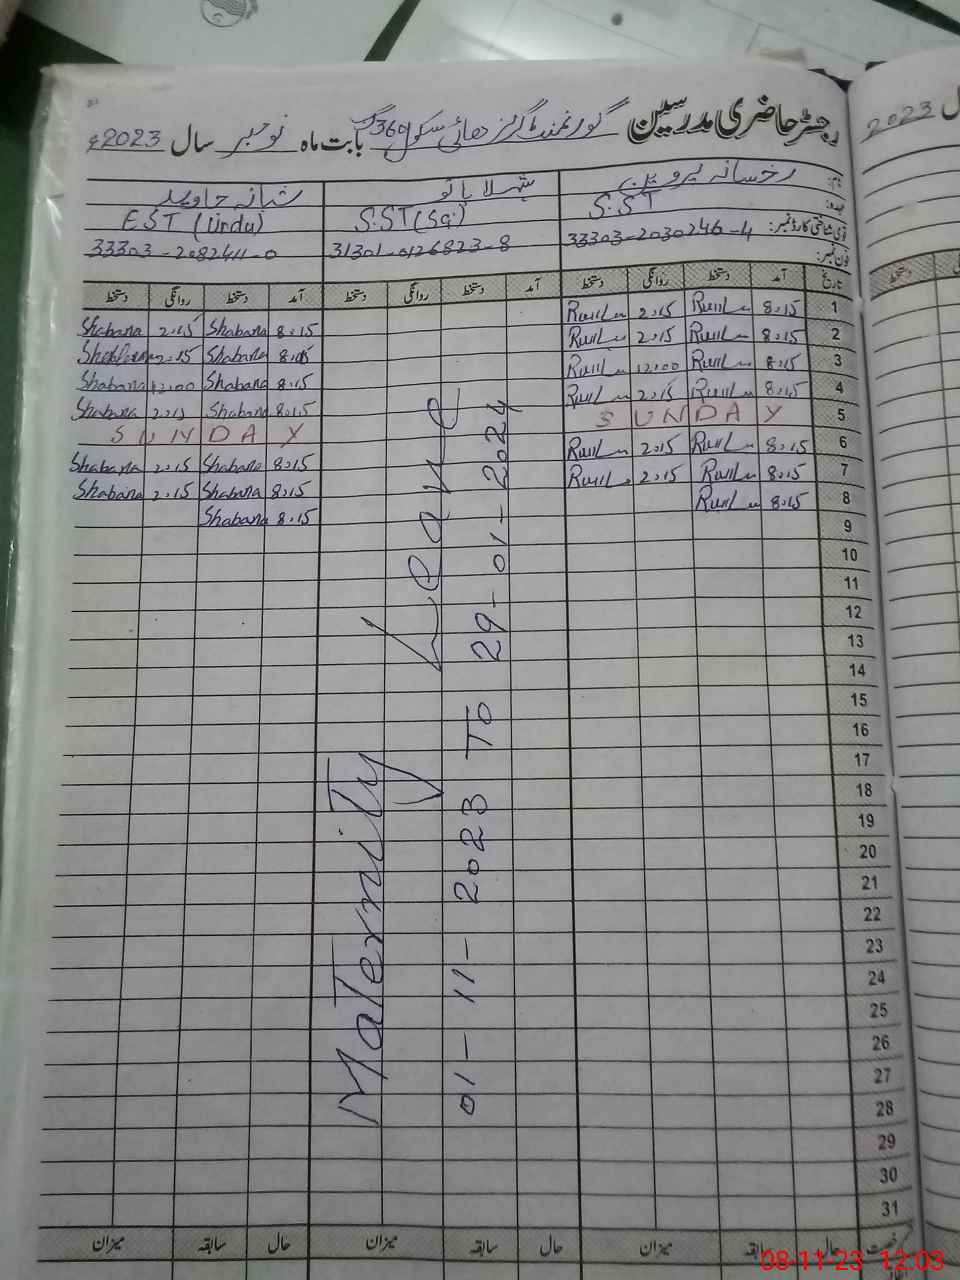 رجسٹر حاضری مدرسین گورنمنٹ گرلز ھائی سکول 369 گ ب بابت ماہ نومبر سال 2023ء
2023
نام: رخسانہ پروین شہلا بانو شبانہ جاوید
عہدہ: S.ST S.ST (Sc.) EST (Urdu)
قومی شناختی کارڈ نمبر: 33303-2030246-4 31301-0126823-8 33303-2082411-0
فون نمبر:
تاریخ آمد دستخط روانگی دستخط آمد دستخط روانگی دستخط آمد دستخط روانگی دستخط
1 8:15 2:15 8:15 Shabana 2:15 Shabana
2 8:15 2:15 8:15 Shabana 2:15 Shabana
3 8:15 12:00 8:15 Shabana 12:00 Shabana
4 8:15 2:15 8:15 Shabana 2:15 Shabana
5 SUNDAY SUNDAY
6 8:15 2:15 8:15 Shabana 2:15 Shabana
7 8:15 2:15 8:15 Shabana 2:15 Shabana
8 8:15 8:15 Shabana
9
10
11
12
13
14
15
16
17
18
19
20
21
22
23
24
25
26
27
28
29
30
31
Maternity Leave
01-11-2023 To 29-01-2024
رخصت حال سابقہ میزان حال سابقہ میزان حال سابقہ میزان
08-11-23 12:03